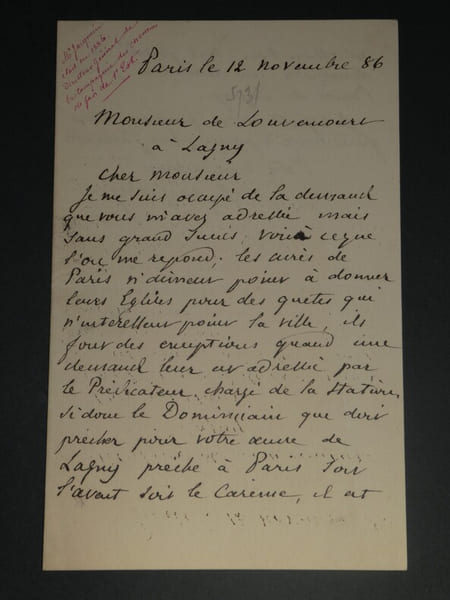 Mr Jacqmin
était en 1886
Directeur général de
la Compagnie des chemins
de fer de l'Est.
Paris le 12 novembre 86
Monsieur de Louvencourt
à Lagny
Cher Monsieur
Je me suis occupé de la demande
que vous m'avez adressée mais
sans grand succès; voici ce que
l'on me repond; les curés de
Paris n'aiment point à donner
leurs Eglises pour des quêtes qui
n'interessent point la ville, ils
font des exceptions quand une
demande leur est adressée par
le Prédicateur chargé de la Station,
si donc le Dominicain que doit
prêcher pour votre œuvre de
Lagny prêche à Paris soit
l'avent soit le Carême, il est